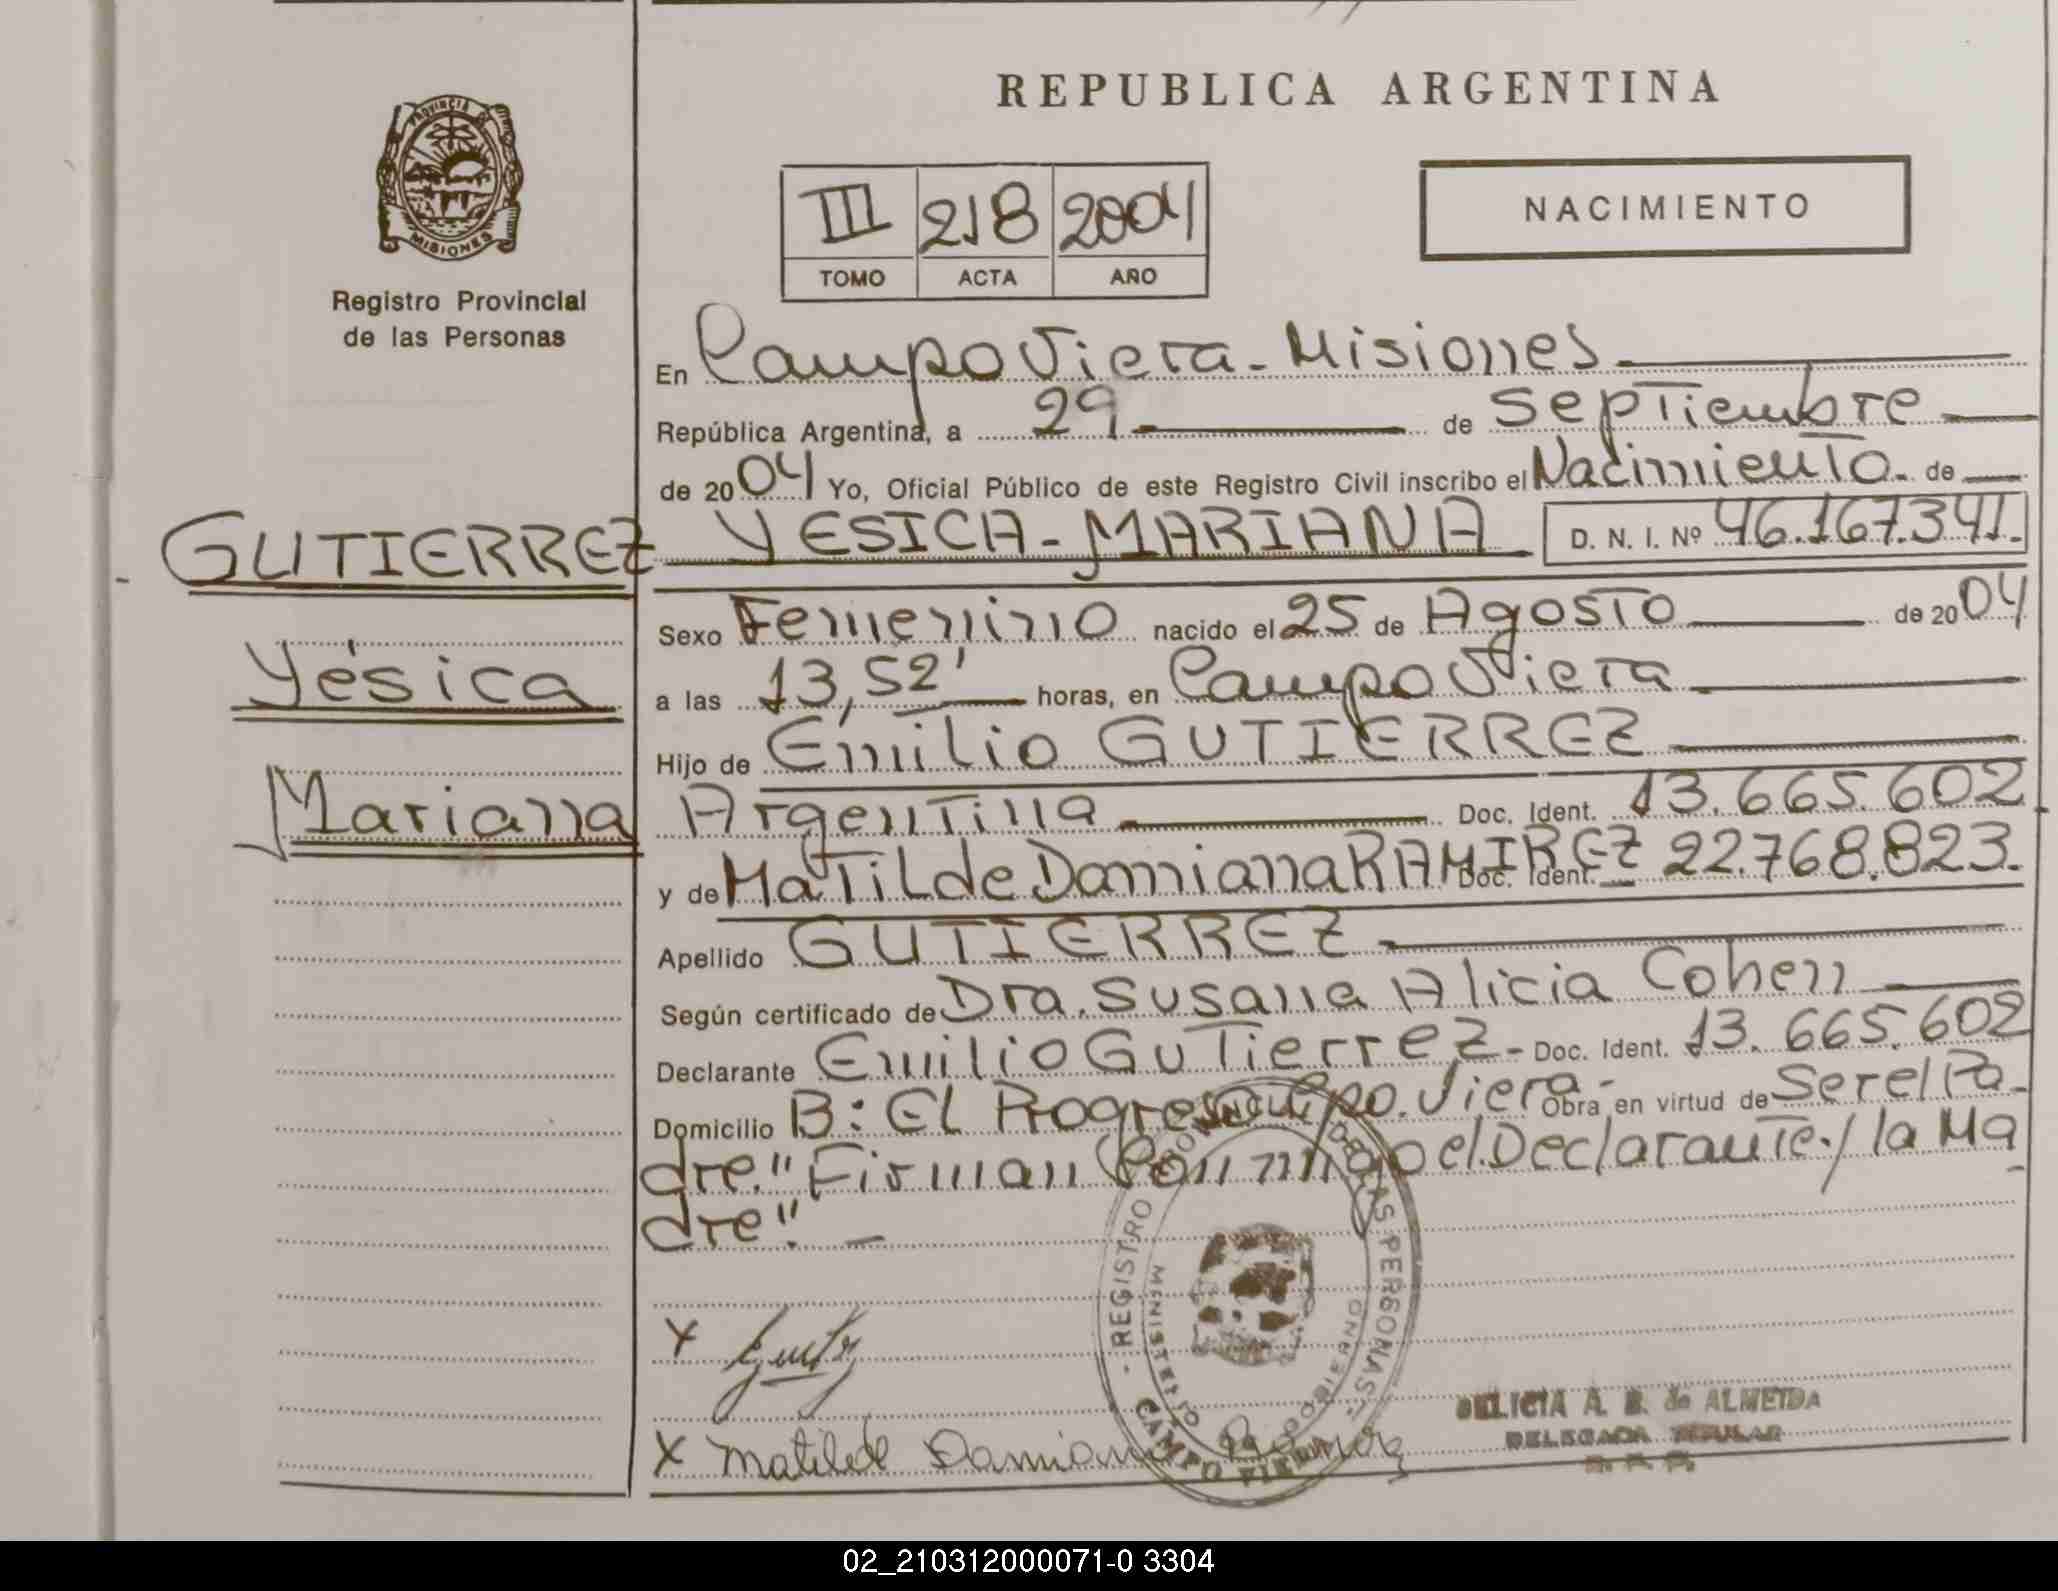 REPUBLICA ARGENTINA
PROVINCIA DE
MISIONES
Registro Provincial
de las Personas
III 218 2004
TOMO ACTA AÑO
NACIMIENTO
En Campo Viera - Misiones
República Argentina, a 29 de Septiembre
de 2004 Yo, Oficial Público de este Registro Civil inscribo el Nacimiento. de
GUTIERREZ
YESICA - MARIANA D. N. I. Nº 46.167.341.
Sexo Femenino nacido el 25 de Agosto de 2004
Yésica
a las 13,52' horas, en Campo Viera
Hijo de Emilio GUTIERREZ
Mariana
Argentina Doc. Ident. 13.665.602
y de Matilde Damiana RAMIREZ Doc. Ident. 22.768.823.
Apellido GUTIERREZ
Según certificado de Dra. Susana Alicia Cohen
Declarante Emilio Gutierrez - Doc. Ident. 13.665.602
Domicilio B: El Progreso Cpo. Viera - Obra en virtud de Ser el Pa-
dre." Firman Conmigo el Declarante / la Ma
dre". -
REGISTRO PROVINCIAL DE LAS PERSONAS
MINISTERIO GOBIERNO
CAMPO VIERA
X
X Matilde Damiana Ramirez
DELICIA A. B. de ALMEIDA
DELEGADA TITULAR
R. P. P.
02_210312000071-0 3304